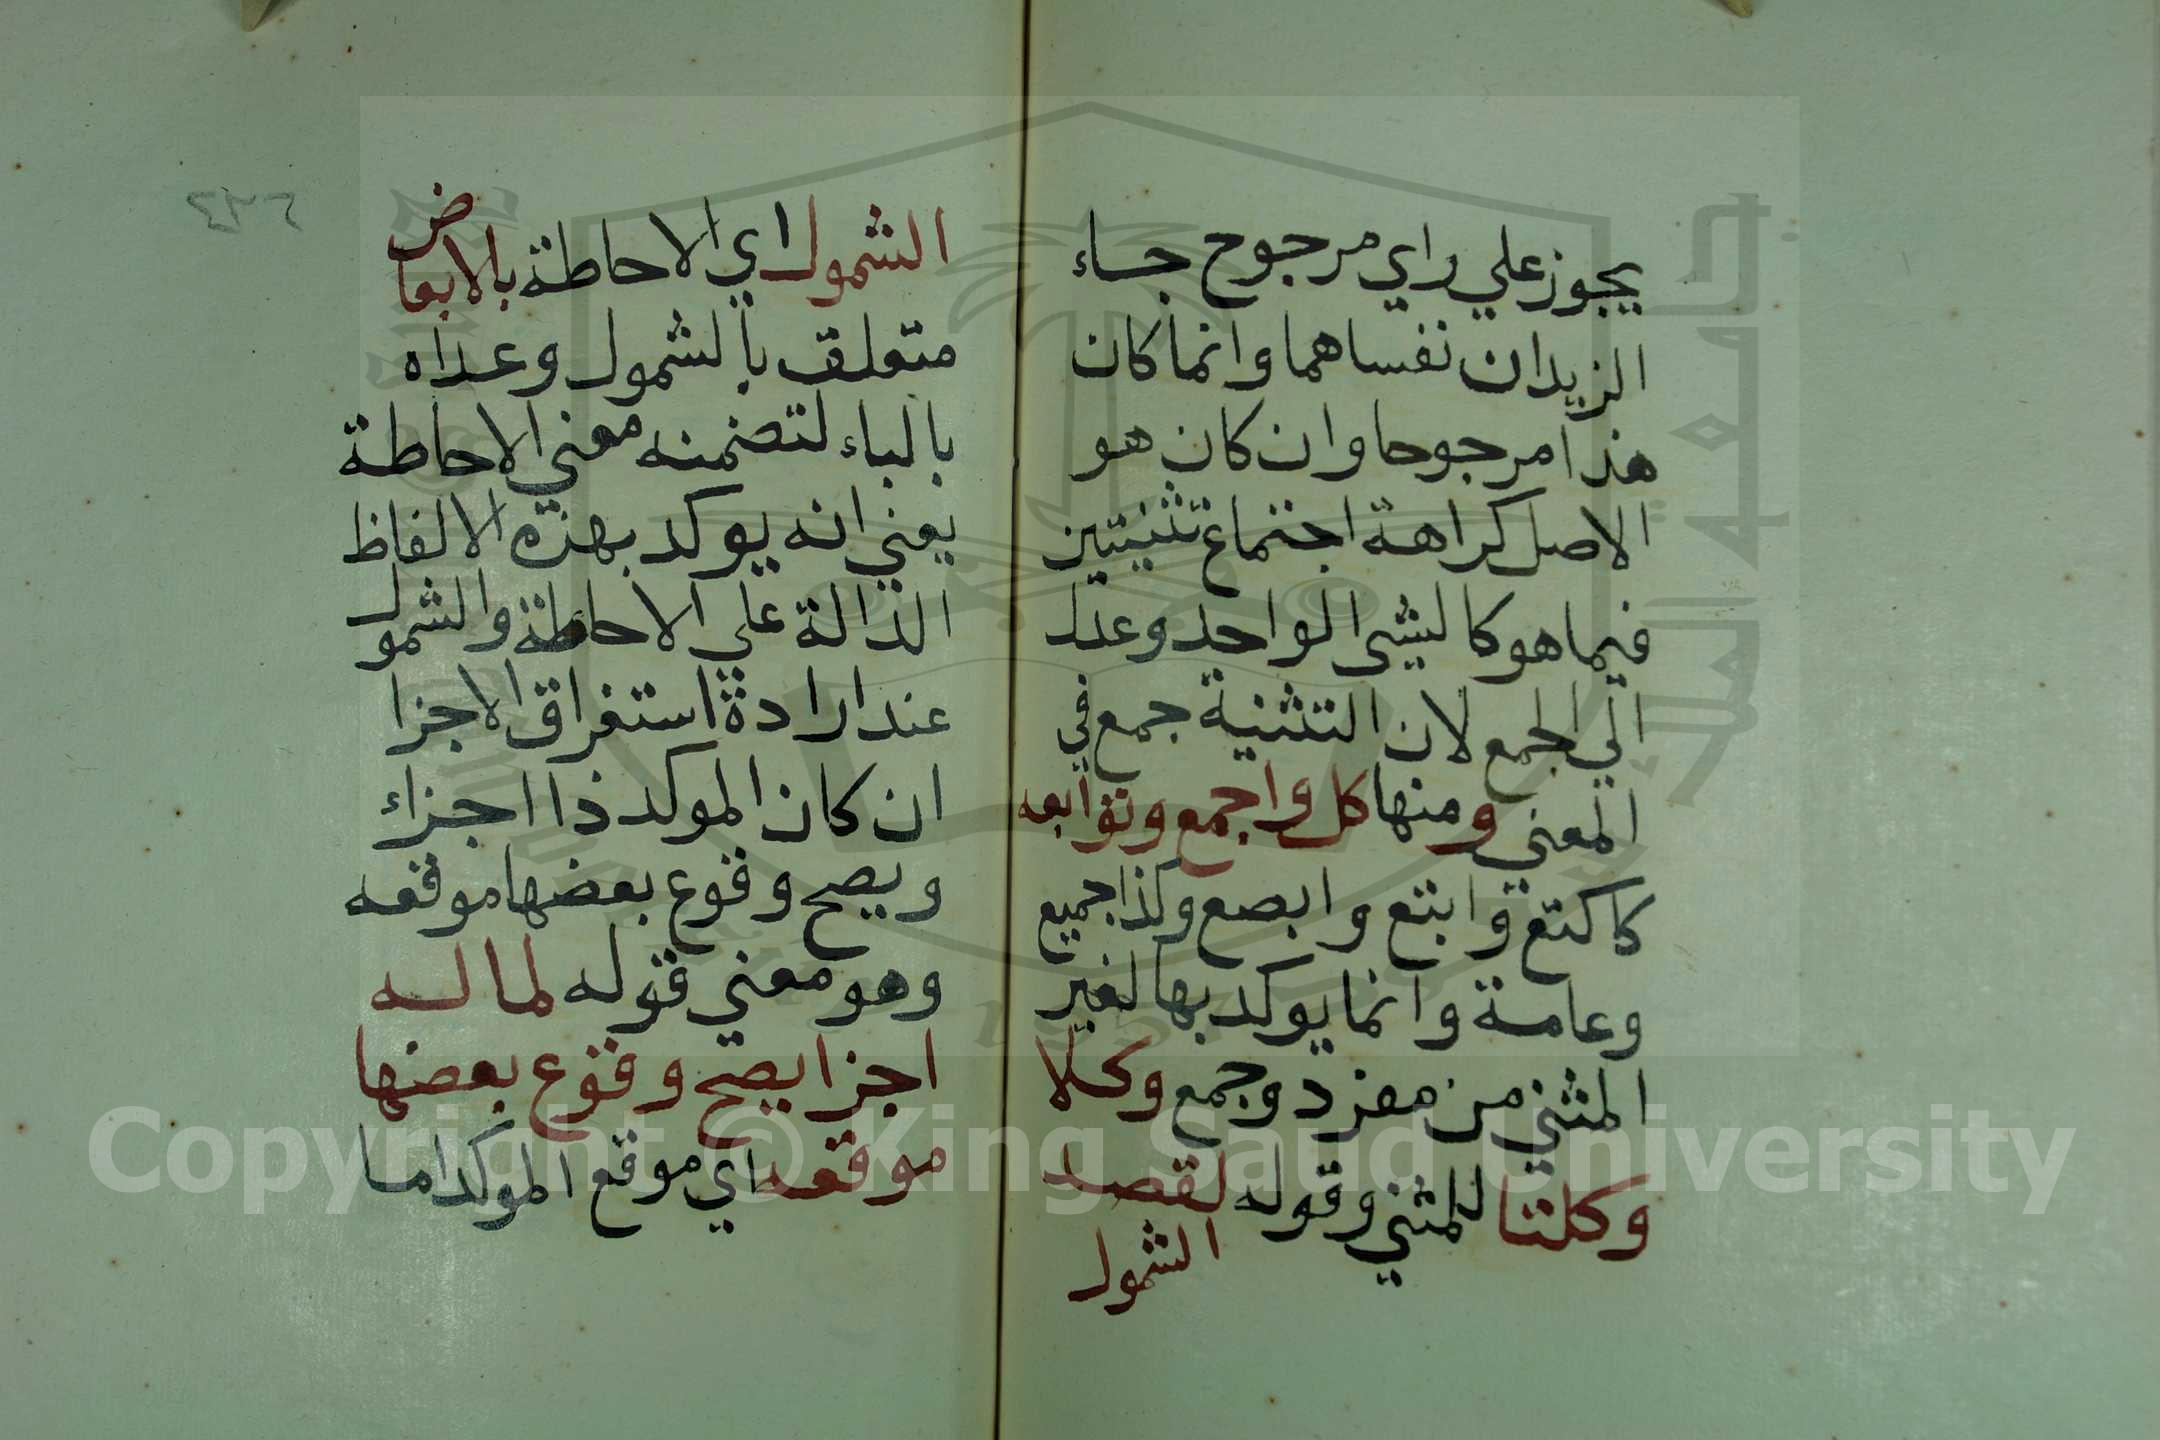 يجوز علي راي مرجوح جاء
الزيدان نفساهما وانما كان
هذا مرجوحا وان كان هو
الاصل كراهة اجتماع تثنيتين
فيما هو كالشي الواحد وعدل
الي الجمع لان التثنية جمع في
المعني ومنها كل واجمع وتوابعه
كاكتع وابتع وابصع وكذا جميع
وعامة وانما يوكد بها لغير
المثني من مفرد وجمع وكلا
وكلتا للمثني وقوله لقصد
الشمول
الشمول اي الاحاطة بالابعاض
متعلق بالشمول وعداه
بالباء لتضمنه معني الاحاطة
يعني انه يوكد بهذه الالفاظ
الدالة علي الاحاطة والشمول
عند ارادة استغراق الاجزا
ان كان الموكد ذا اجزاء
ويصح وقوع بعضها موقعه
وهو معني قوله لما له
اجزا يصح وقوع بعضها
موقعه اي موقع الموكد اما
Copyright © King Saud University
1957